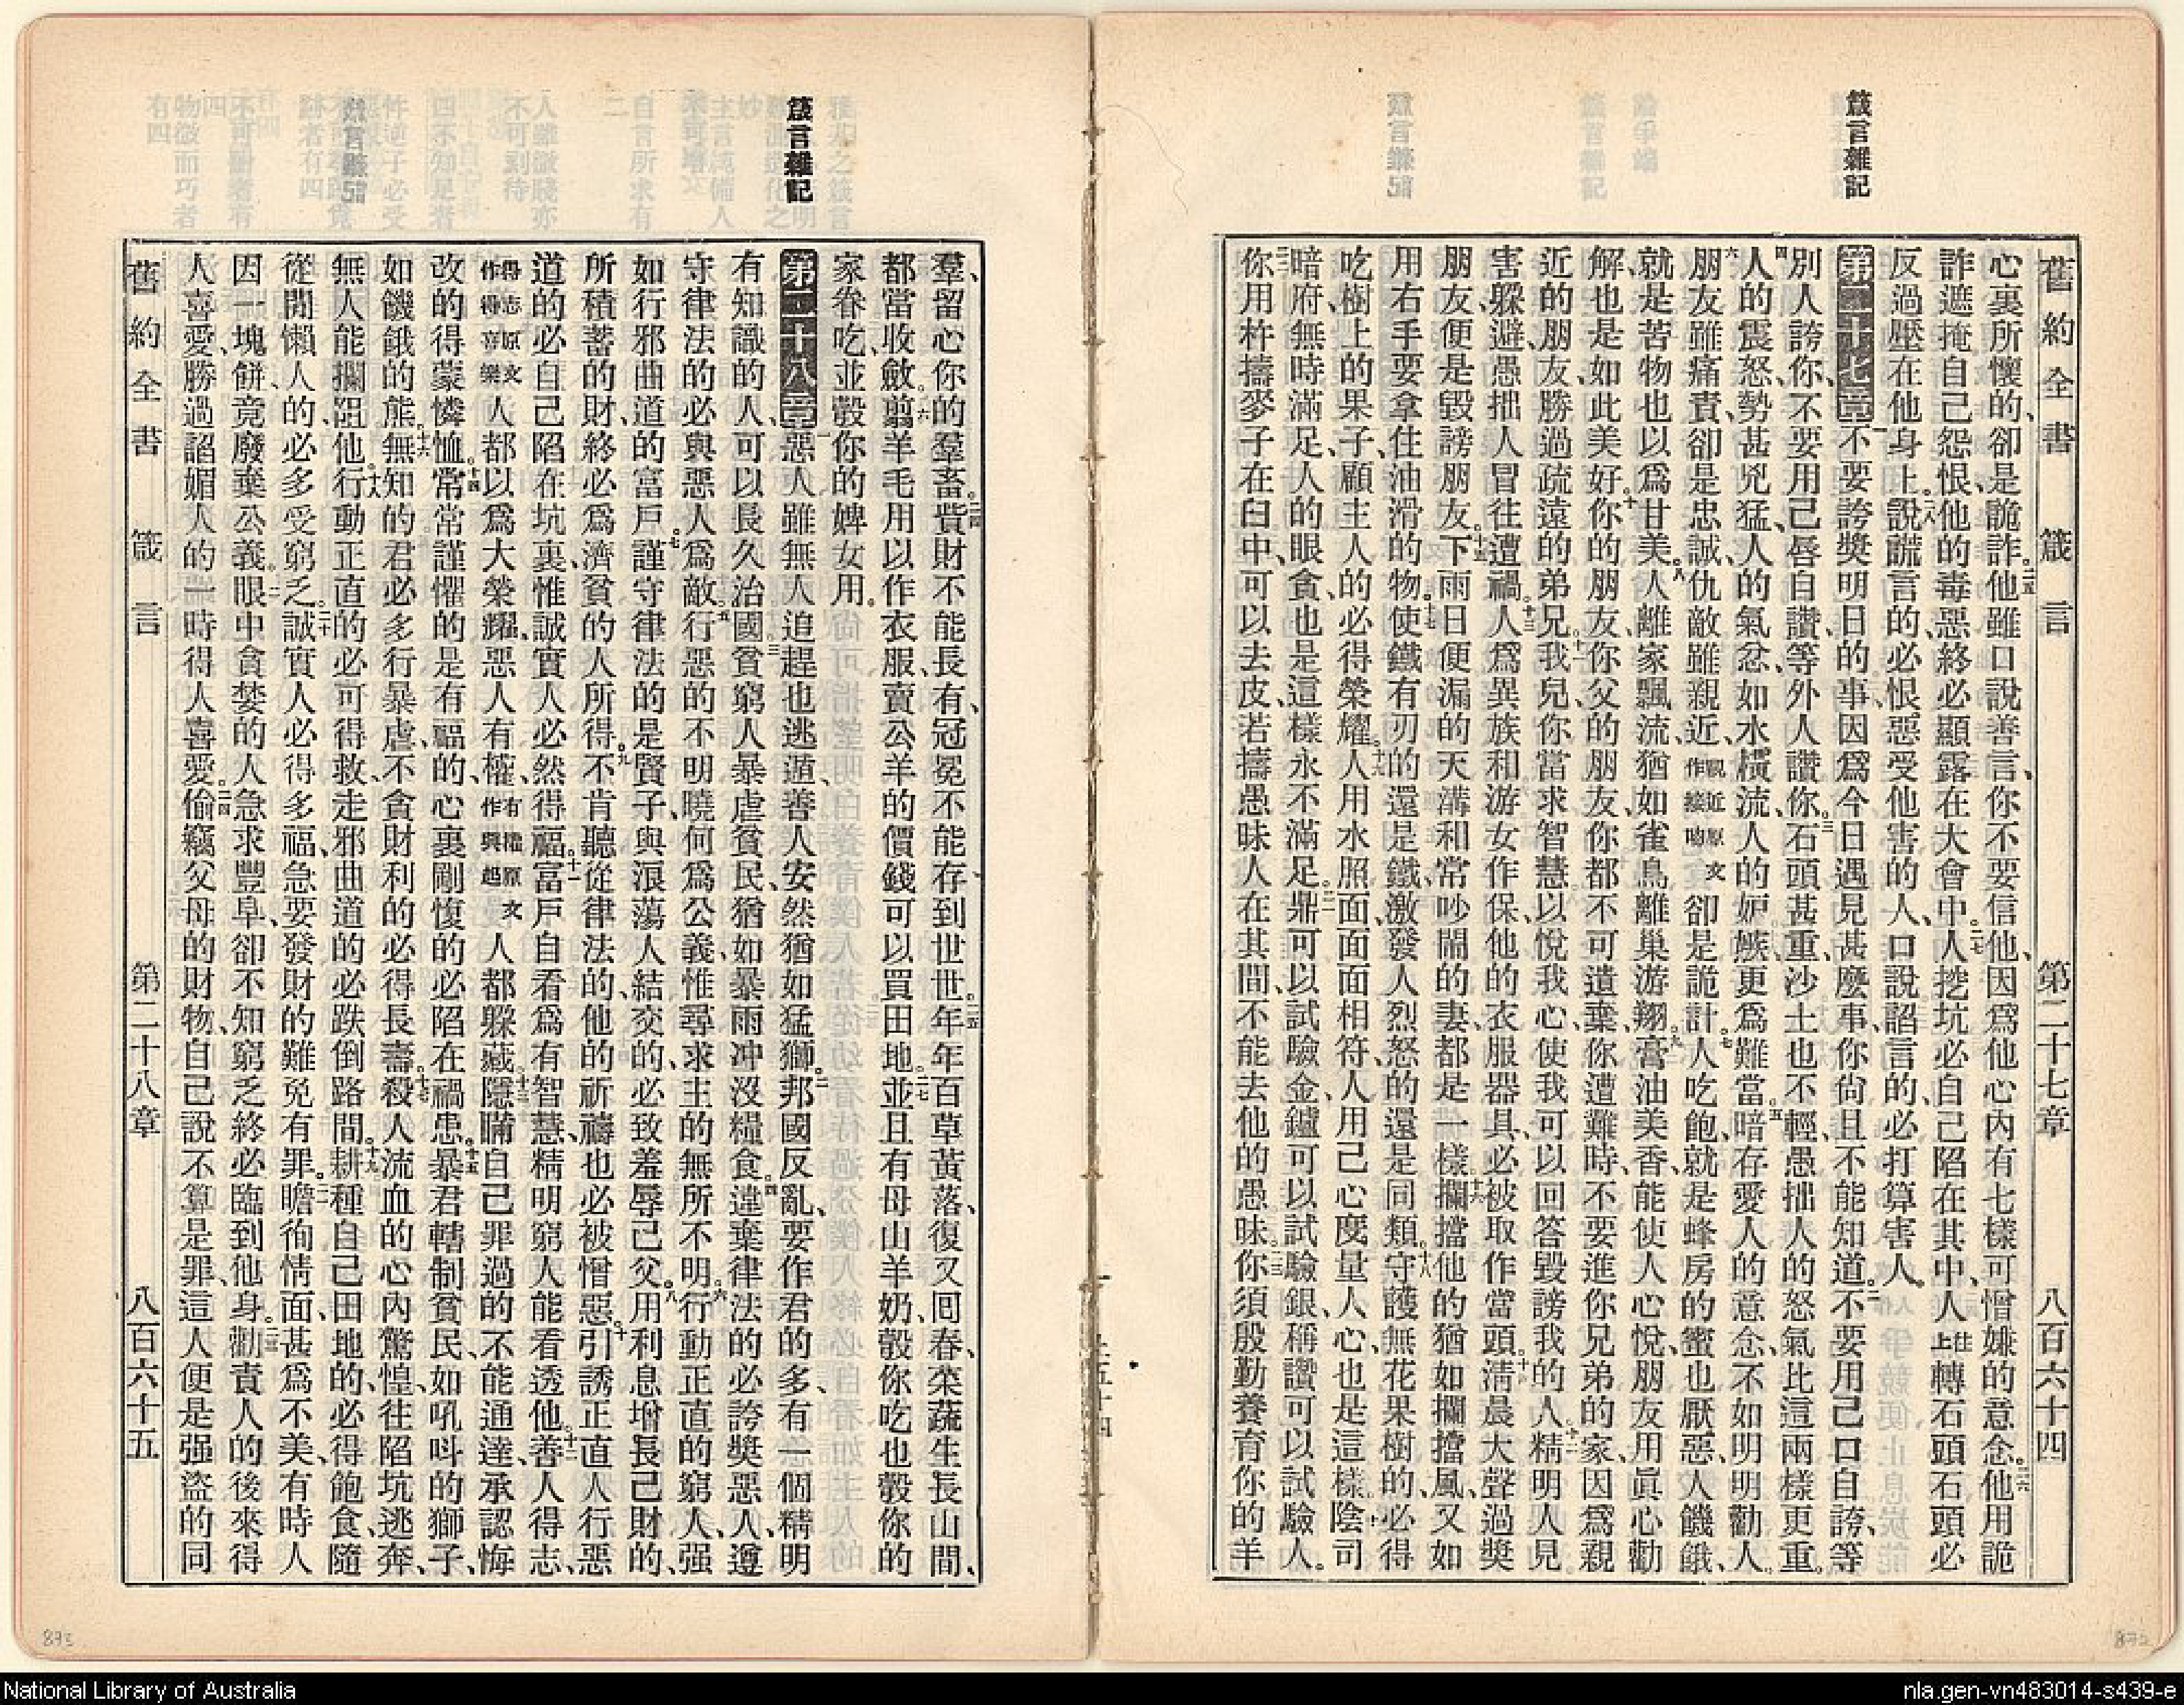 箴言雜記
舊約全書　箴言　第二十七章　八百六十四
心裏所懷的、卻是詭詐。二五他雖口說善言、你不要信他、因爲他心內有七樣可憎嫌的意念。二六他用詭
詐遮掩自己怨恨、他的毒惡終必顯露在大會中。二七人挖坑必自己陷在其中、人往上轉石頭、石頭必
反過壓在他身上。二八說謊言的、必恨惡受他害的人、口說諂言的、必打算害人。
第二十七章一不要誇獎明日的事、因爲今日遇見甚麼事、你尙且不能知道。二不要用己口自誇、等
別人誇你、不要用己唇自讚、等外人讚你。三石頭甚重、沙土也不輕、愚拙人的怒氣比這兩樣更重。
四人的震怒、勢甚兇猛、人的氣忿、如水橫流、人的妒嫉、更爲難當。五暗存愛人的意念、不如明明勸人。
六朋友雖痛責、卻是忠誠、仇敵雖親近、親近原文作接吻卻是詭計。七人吃飽、就是蜂房的蜜也厭惡、人饑餓、
就是苦物也以爲甘美。八人離家飄流、猶如雀鳥離巢游翔。九膏油美香、能使人心悅、朋友用眞心勸
解、也是如此美好。十你的朋友、你父的朋友、你都不可遺棄、你遭難時、不要進你兄弟的家、因爲親
近的朋友、勝過疏遠的弟兄。十一我兒、你當求智慧、以悅我心、使我可以回答毀謗我的人。十二精明人見
害躲避、愚拙人冒往遭禍。十三人爲異族和游女作保、他的衣服器具、必被取作當頭。十四淸晨大聲過獎
朋友、便是毀謗朋友。十五下雨日便漏的天溝、和常吵鬧的妻、都是一樣。十六攔擋他的、猶如攔擋風、又如
用右手要拿住油滑的物。十七使鐵有刃的還是鐵、激發人烈怒的還是同類。十八守護無花果樹的、必得
吃樹上的果子、顧主人的必得榮耀。十九人用水照面、面面相符、人用己心度量人心、也是這樣。二十陰司
暗府無時滿足、人的眼貪也是這樣永不滿足。二一鼎可以試驗金、鑪可以試驗銀、稱讚可以試驗人。
二二你用杵擣麥子在臼中、可以去皮、若擣愚昧人在其間、不能去他的愚昧。二三你須殷勤養育你的羊
箴言雜記
羣、留心你的羣畜。二四貲財不能長有、冠冕不能存到世世。二五年年百草黃落、復又囘春、菜蔬生長山間、
都當收斂。二六翦羊毛用以作衣服、賣公羊的價錢可以買田地。二七並且有母山羊奶、彀你吃、也彀你的
家眷吃、並彀你的婢女用。
第二十八章一惡人雖無人追趕也逃遁、善人安然猶如猛獅。二邦國反亂、要作君的多、有一個精明
有知識的人、可以長久治國。三貧窮人暴虐貧民、猶如暴雨冲沒糧食。四違棄律法的必誇獎惡人、遵
守律法的必與惡人爲敵。五行惡的不明曉何爲公義、惟尋求主的無所不明。六行動正直的窮人、强
如行邪曲道的富戶。七謹守律法的是賢子、與浪蕩人結交的、必致羞辱己父。八用利息增長己財的、
所積蓄的財、終必爲濟貧的人所得。九不肯聽從律法的、他的祈禱也必被憎惡。十引誘正直人行惡
道的、必自己陷在坑裏、惟誠實人必然得福。十一富戶自看爲有智慧、精明窮人能看透他。十二善人得志、
得志原文作得喜樂人都以爲大榮耀、惡人有權、有權原文作興起人都躲藏。十三隱瞞自己罪過的不能通達、承認悔
改的得蒙憐恤。十四常常謹懼的是有福的、心裏剛愎的必陷在禍患。十五暴君轄制貧民、如吼呌的獅子、
如饑餓的熊。十六無知的君必多行暴虐、不貪財利的必得長壽。十七殺人流血的、心內驚惶、往陷坑逃奔、
無人能攔阻他。十八行動正直的必可得救、走邪曲道的必跌倒路間。十九耕種自己田地的、必得飽食、隨
從閒懶人的、必多受窮乏。二十誠實人必得多福、急要發財的難免有罪。二一瞻徇情面、甚爲不美、有時人
因一塊餅、竟廢棄公義。二二眼中貪婪的人急求豐阜、卻不知窮乏終必臨到他身。二三勸責人的後來得
人喜愛、勝過諂媚人的一時得人喜愛。二四偷竊父母的財物、自己說不算是罪、這人便是强盜的同
舊約全書　箴言　第二十八章　八百六十五
873
872
National Library of Australia
nla.gen-vn483014-s439-e